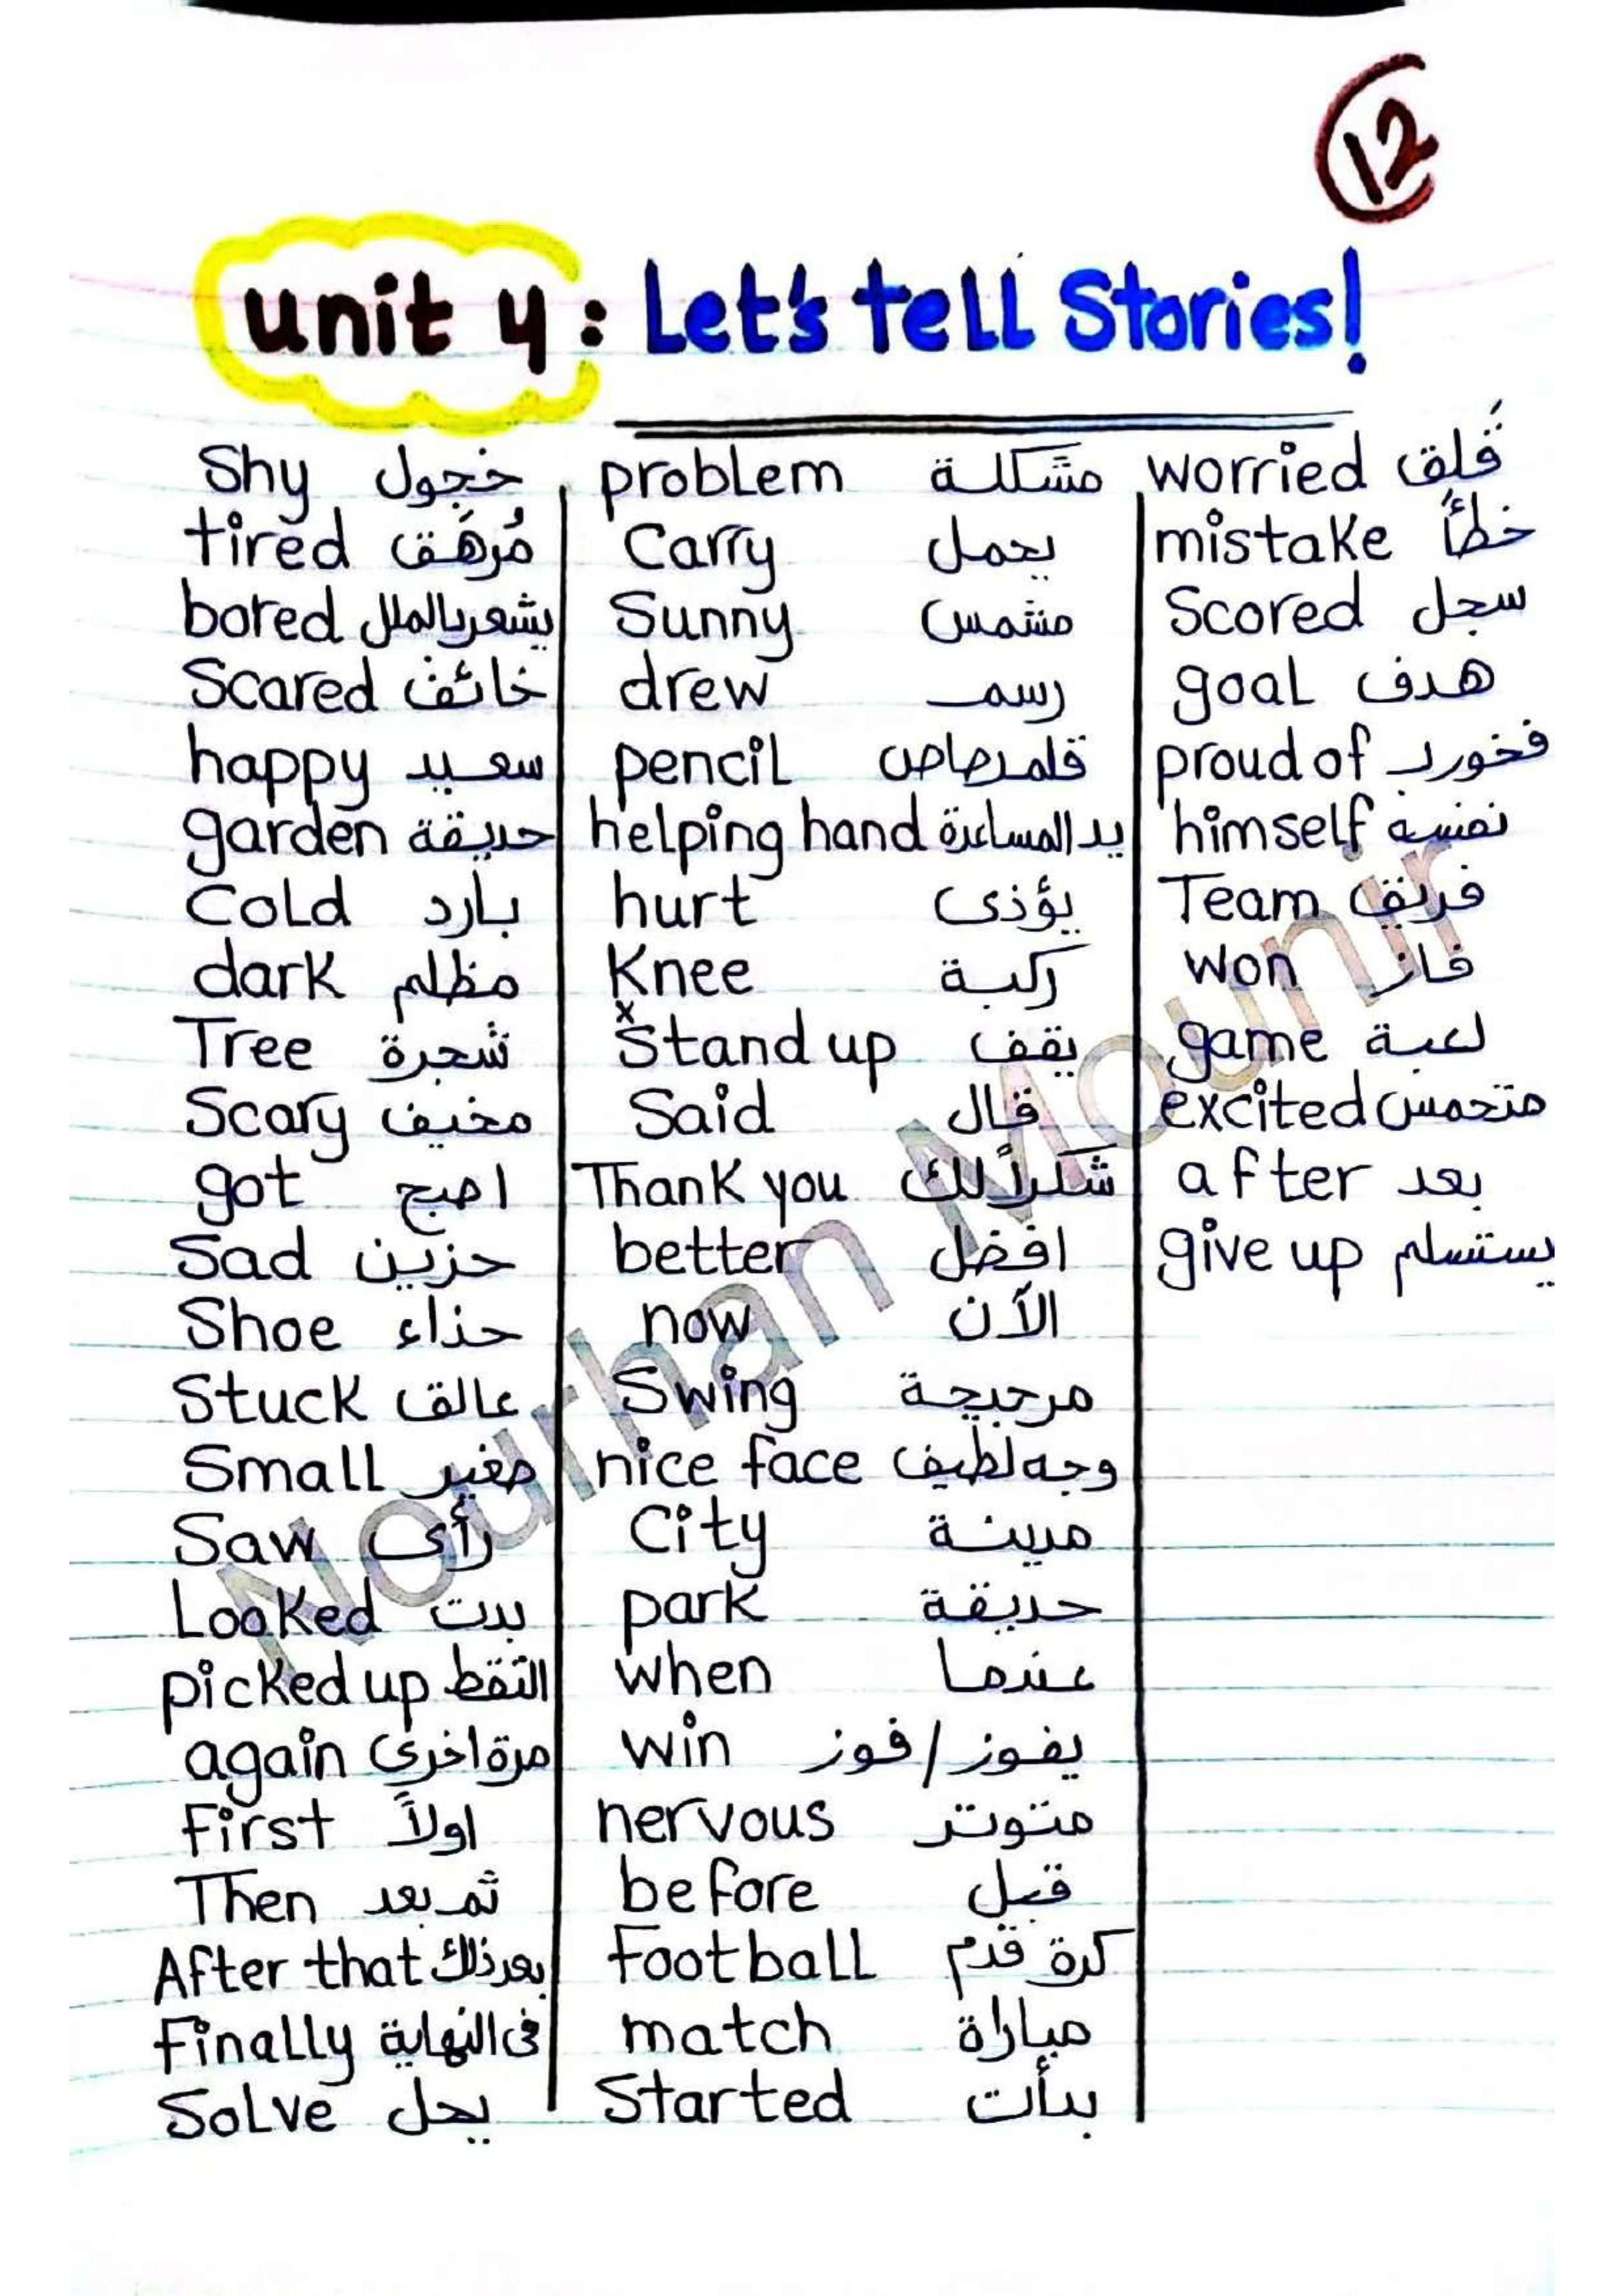 12
unit 4: Let's tell Stories!
Shy خجول
tired مُرهَق
bored يشعر بالملل
Scared خائف
happy سعيد
garden حديقة
Cold بارد
dark مظلم
Tree شجرة
Scary مخيف
got اصبح
Sad حزين
Shoe حذاء
Stuck عالق
Small صغير
Saw رأى
Looked بدت
picked up التقط
again مرة اخرى
First اولاً
Then ثم بعد
After that بعد ذلك
Finally فى النهاية
Solve يحل
problem مشكلة
Carry يحمل
Sunny مشمس
drew رسم
pencil قلم رصاص
helping hand يد المساعدة
hurt يؤذى
Knee ركبة
Stand up يقف
Said قال
Thank you شكراً لك
better افضل
now الآن
Swing مرجيحة
nice face وجه لطيف
City مدينة
park حديقة
when عندما
win يفوز / فوز
nervous متوتر
before قبل
Football كرة قدم
match مباراة
Started بدأت
worried قَلق
mistake خطأ
Scored سجل
goal هدف
proud of فخور بـ
himself نفسه
Team فريق
won فاز
game لعبة
excited متحمس
after بعد
give up يستسلم
Nourhan Mounir